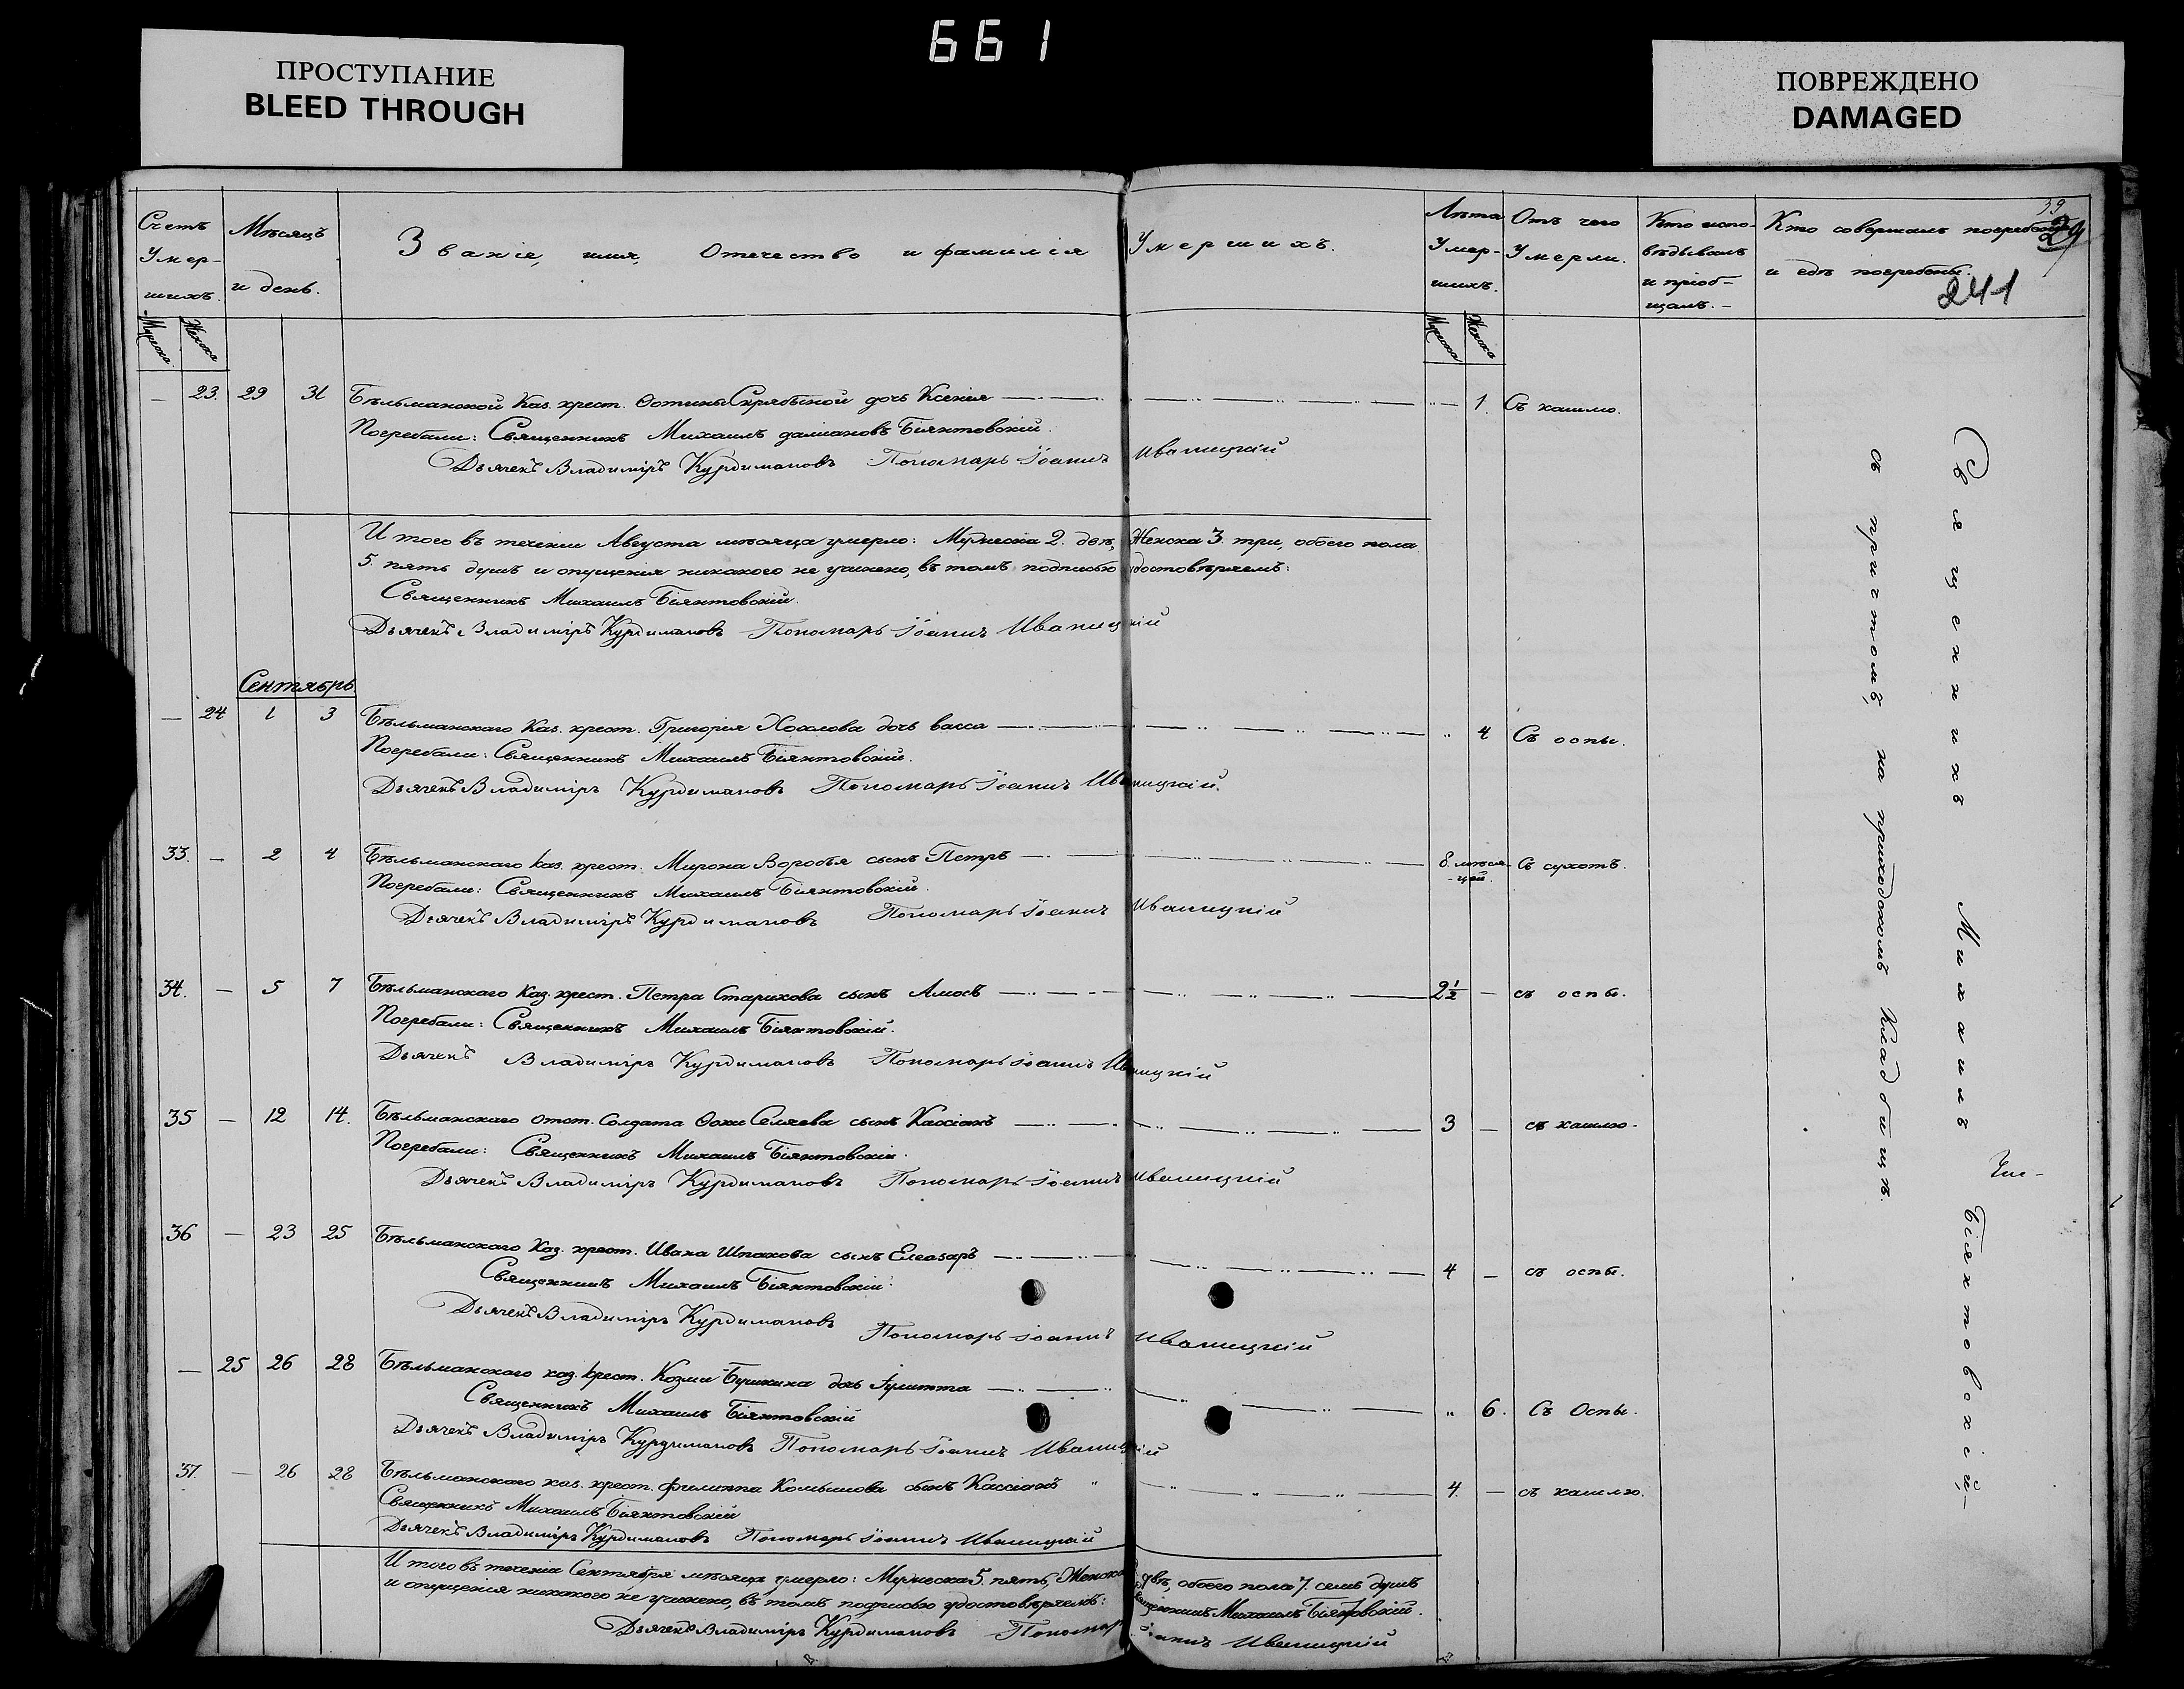 661
ПРОСТУПАНИЕ
BLEED THROUGH
ПОВРЕЖДЕНО
DAMAGED
39
29
241
Счетъ Умер-шихъ.
Мѣсяцъ и день.
Званіе, имя, Отечество и фамилія Умершихъ.
Лѣта Умер-шихъ.
Отъ чего Умерли.
Кто испо-вѣдывалъ и пріоб-щалъ.-
Кто совершалъ погребеніе и гдѣ погребены.
Мужеска Женска
Мужеска Женска
— 23. 29 31 Бѣльманской Каз. крест. Фотины Скрябиной дочь Ксенія — 1. Съ кашлю.
Погребали: Священникъ Михаилъ Даміановъ Біянтовскій.
Дьячекъ Владиміръ Курдимановъ Пономарь Іоаннъ Иваницкій
И того въ теченіи Августа мѣсяца умерло: Мужеска 2. двѣ, Женска 3. три, обоего пола
5. пять душъ и опущенія никакого не учинено, въ томъ подписью удостовѣряемъ:
Священникъ Михаилъ Біянтовскій.
Дьячекъ Владиміръ Курдимановъ Пономарь Іоаннъ Иваницкій
Сентябрь.
— 24 1 3 Бѣльманскаго Каз. крест. Григорія Хохлова дочь Васса — „ 4 Съ оспы.
Погребали: Священникъ Михаилъ Біянтовскій.
Дьячекъ Владиміръ Курдимановъ Пономарь Іоаннъ Иваницкій.
33. — 2 4 Бѣльманскаго каз. крест. Мирона Воробья сынъ Петръ — 8. мѣся-цей. Съ сухотъ.
Погребали: Священникъ Михаилъ Біянтовскій.
Дьячекъ Владиміръ Курдимановъ Пономарь Іоаннъ Иваницкій
34. — 5 7 Бѣльманскаго Каз. крест. Петра Старикова сынъ Амосъ — 2½ — съ оспы.
Погребали: Священникъ Михаилъ Біянтовскій.
Дьячекъ Владиміръ Курдимановъ Пономарь Іоаннъ Иваницкій
35 — 12 14. Бѣльманскаго отст. Солдата Фоки Селяева сынъ Кассіанъ — 3 — съ кашлю.
Погребали: Священникъ Михаилъ Біянтовскій.
Дьячекъ Владиміръ Курдимановъ Пономарь Іоаннъ Иваницкій
36 — 23 25 Бѣльманскаго Каз. крест. Ивана Шпакова сынъ Елеазаръ — 4 — съ оспы.
Священникъ Михаилъ Біянтовскій.
Дьячекъ Владиміръ Курдимановъ
Пономарь Іоаннъ Иваницкій
— 25 26 28 Бѣльманского каз. крест. Козми дочь Іулитта — „ 6. Съ Оспы.
Священникъ Михаилъ Біянтовскій
Дьячекъ Владиміръ Курдимановъ Пономарь Іоаннъ Иваницкій
37. — 26 28 Бѣльманскаго каз. крест. Филиппа сынъ Кассіанъ „ 4. — съ кашлю.
Священникъ Михаилъ Біянтовскій
Дьячекъ Владиміръ Курдимановъ Пономарь Іоаннъ Иваницкій
И того въ теченіи Сентября мѣсяца умерло: Мужеска 5. пять, Женска двѣ, обоего пола 7. семь душъ
и опущенія никакого не учинено, въ томъ подписью удостовѣряемъ: Священникъ Михаилъ Біянтовскій.
Дьячекъ Владиміръ Курдимановъ Пономарь Іоаннъ Иваницкій
Священникъ Михаилъ Біянтовскій-
съ причтомъ, на приходскомъ Кладбищѣ.